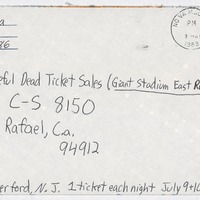 a
86
NOVA
PM
1983
eful Dead Ticket Sales (Giant Stadium East R
C-S 8150
Rafael, Ca.
94912
erford, N.J. 1 ticket each night July 9+10